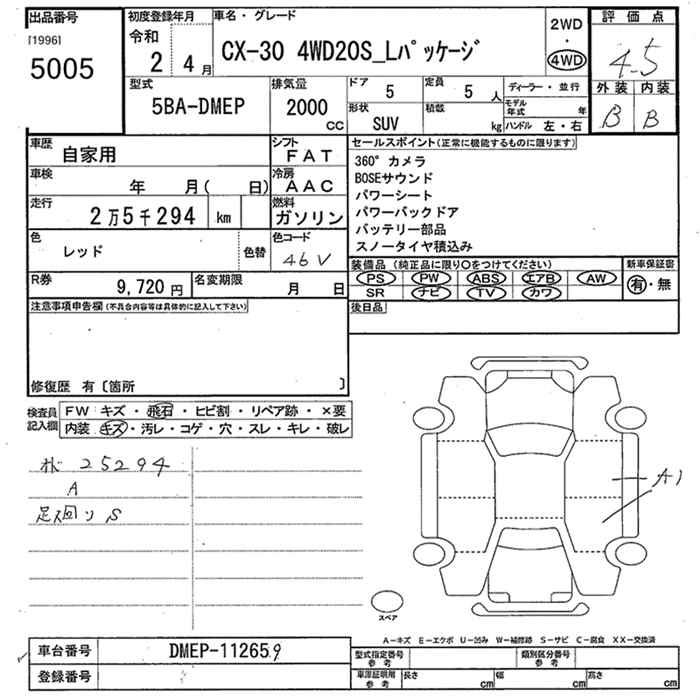 出品番号
[1996]
5005
初度登録年月
令和
2 4月
車名・グレード
CX-30 4WD20S_Lパッケージ
2WD
・
4WD
評価点
4.5
外装 内装
B B
型式
5BA-DMEP
排気量
2000
CC
ドア
5
定員
5 人
形状
SUV
積載
kg
ディーラー・並行
モデル年式 年
ハンドル 左・右
車歴
自家用
シフト
FAT
車検
年 月( 日)
冷房
AAC
走行
2万5千294 km
燃料
ガソリン
色
レッド
色替
色コード
46V
R券
9,720円
名変期限
月 日
セールスポイント(正常に機能するものに限ります)
360°カメラ
BOSEサウンド
パワーシート
パワーバックドア
バッテリー部品
スノータイヤ積込み
装備品(純正品に限り○をつけてください)
新車保証書
PS PW ABS エアB AW
SR ナビ TV カワ
有・無
後日品
注意事項申告欄(不具合内容等は具体的に記入して下さい)
修復歴 有〔箇所 〕
検査員記入欄
FW キズ・飛石・ヒビ割・リペア跡・×要
内装 キズ・汚レ・コゲ・穴・スレ・キレ・破レ
25294
A
足廻り S
A1
スペア
A-キズ E-エクボ U-凹み W-補修跡 S-サビ C-腐食 XX-交換済
車台番号
DMEP-112659
登録番号
型式指定番号
参考
類別区分番号
参考
車庫証明用
参考
長さ cm
幅 cm
高さ cm